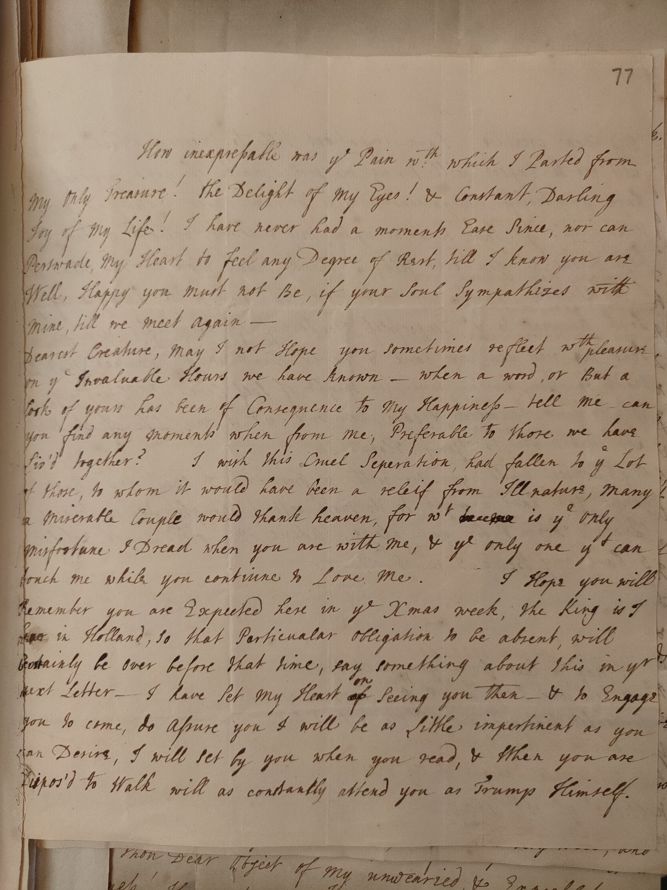 77
How inexpressable was yᵉ Pain wᵗʰ which I Parted from
My only Treasure! the Delight of My Eyes! & Constant, Darling
Joy of My Life! I have never had a moments Ease Since, nor can
Perswade, My Heart to feel any Degree of Rest, till I know you are
Well, Happy you Must not Be, if your Soul Sympathizes with
Mine, till we meet again —
Dearest Creature, may I not Hope you sometimes reflect wᵗʰ pleasure
on yᵉ Invaluable Hours we have known — when a word, or But a
look of yours has been of Consequence to My Happiness — tell me can
you find any moments when from me, Preferable to those we have
together? I wish this Cruel Seperation, had fallen to yᵉ Lot
of those, to whom it would have been a releif from Ill nature, many
a Miserable Couple would thank heaven, for wᵗ is yᵉ only
misfortune I Dread when you are with Me, & yᵉ only one yᵗ can
touch me while you continue to Love Me. I Hope you will
Remember you are Expected here in yᵉ Xmas week, the King is I
in Holland, so that Particualar obligation to be absent, will
Certainly be over before that time, say something about this in yʳ
next Letter — I have Set My Heart on Seeing you then — & to Engage
you to come, do Assure you I will be as little impertinent as you
can Desire, I will Set by you when you read, & When you are
Dispos'd to Walk will as constantly attend you as Trump Himself.
thou Dear object of my unwearied &